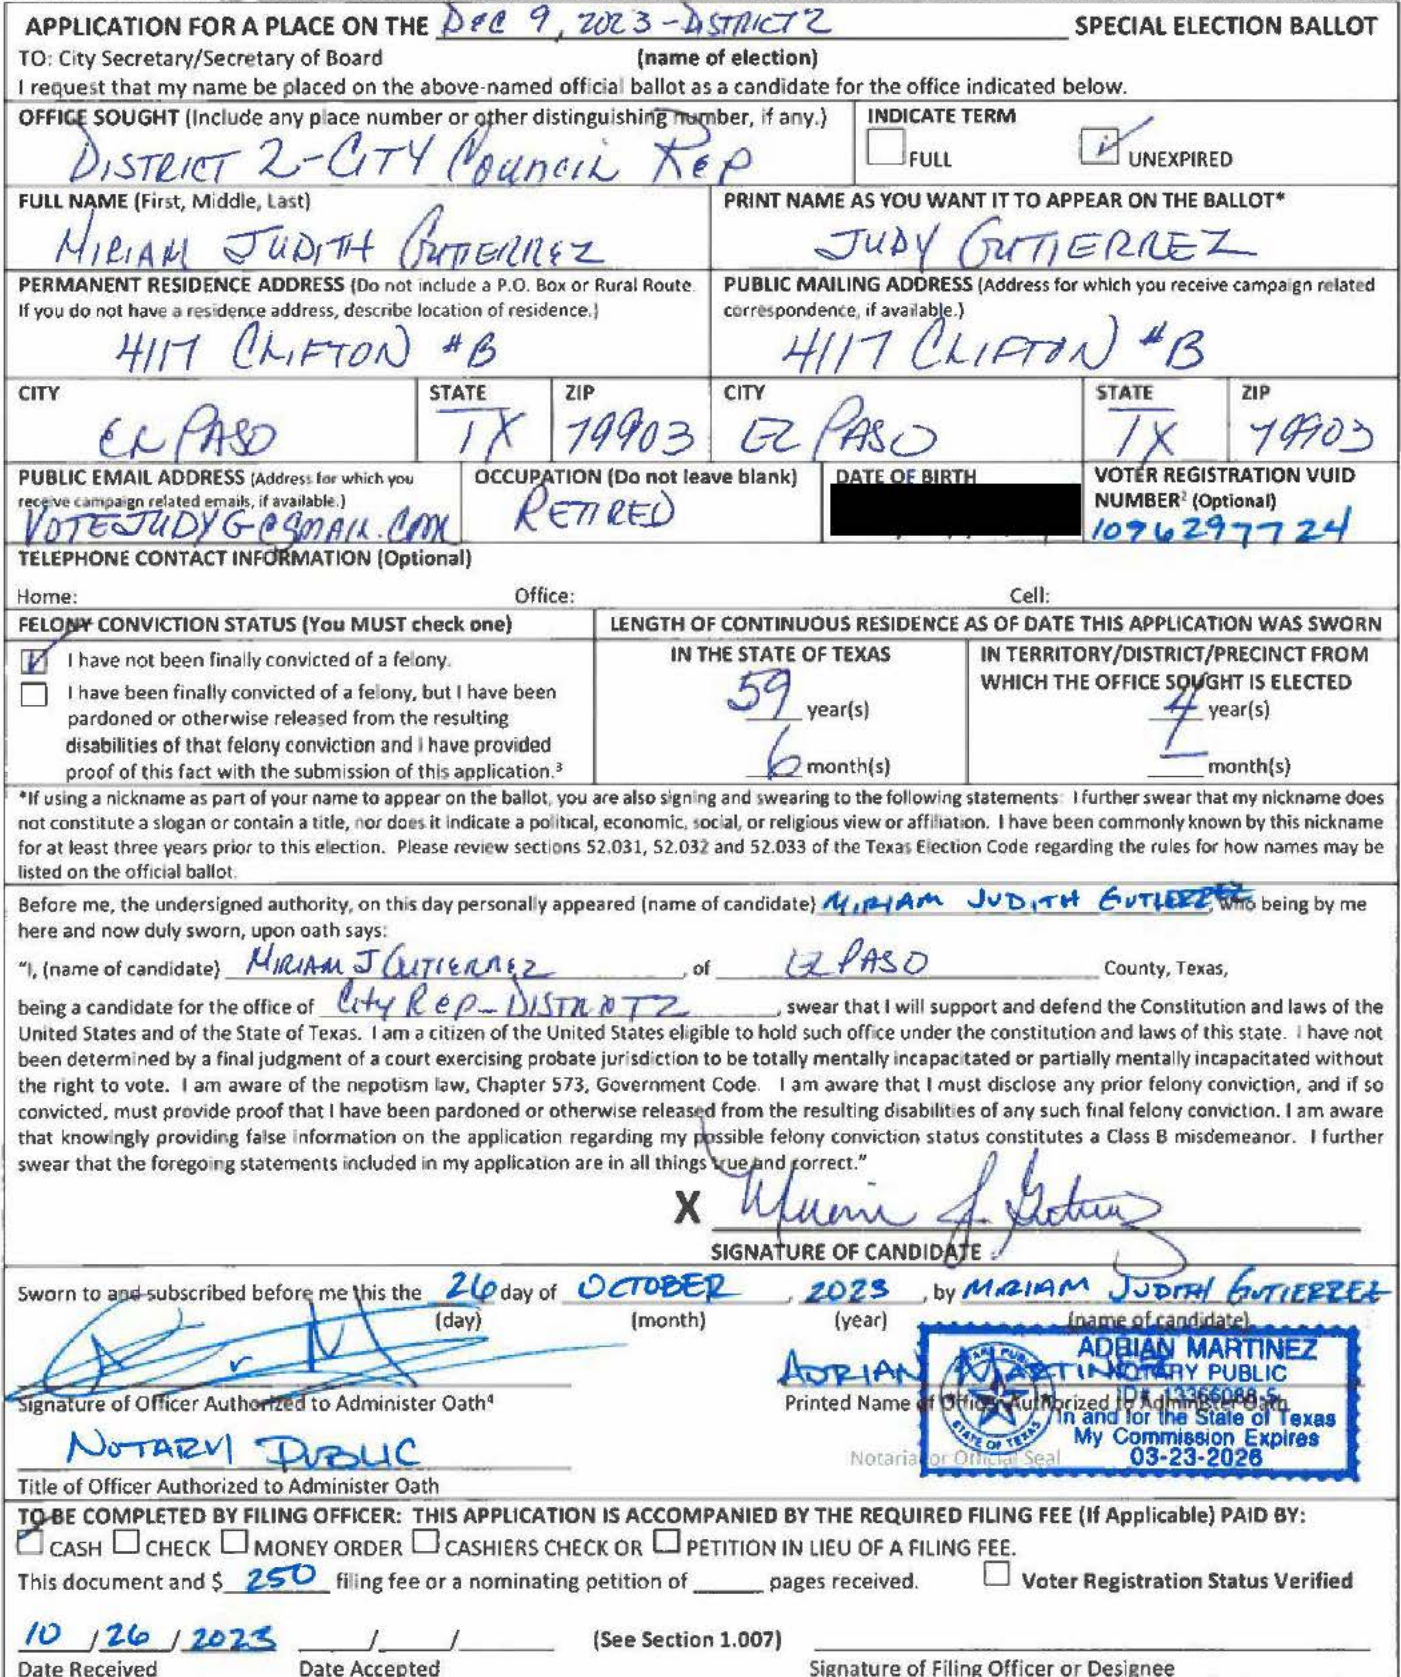 APPLICATION FOR A PLACE ON THE DEC 9, 2023 - DISTRICT 2 SPECIAL ELECTION BALLOT
TO: City Secretary/Secretary of Board (name of election)
I request that my name be placed on the above-named official ballot as a candidate for the office indicated below.
OFFICE SOUGHT (Include any place number or other distinguishing number, if any.) INDICATE TERM
DISTRICT 2-CITY COUNCIL REP FULL UNEXPIRED
FULL NAME (First, Middle, Last) PRINT NAME AS YOU WANT IT TO APPEAR ON THE BALLOT*
MIRIAM JUDITH GUTIERREZ JUDY GUTIERREZ
PERMANENT RESIDENCE ADDRESS (Do not include a P.O. Box or Rural Route. PUBLIC MAILING ADDRESS (Address for which you receive campaign related
If you do not have a residence address, describe location of residence.) correspondence, if available.)
4117 CLIFTON #B 4117 CLIFTON #B
CITY STATE ZIP CITY STATE ZIP
EL PASO TX 79903 EL PASO TX 79903
PUBLIC EMAIL ADDRESS (Address for which you OCCUPATION (Do not leave blank) DATE OF BIRTH VOTER REGISTRATION VUID
receive campaign related emails, if available.) NUMBER² (Optional)
VOTEJUDYG@GMAIL.COM RETIRED 1096297724
TELEPHONE CONTACT INFORMATION (Optional)
Home: Office: Cell:
FELONY CONVICTION STATUS (You MUST check one) LENGTH OF CONTINUOUS RESIDENCE AS OF DATE THIS APPLICATION WAS SWORN
I have not been finally convicted of a felony. IN THE STATE OF TEXAS IN TERRITORY/DISTRICT/PRECINCT FROM
I have been finally convicted of a felony, but I have been WHICH THE OFFICE SOUGHT IS ELECTED
pardoned or otherwise released from the resulting 59 year(s) 4 year(s)
disabilities of that felony conviction and I have provided
proof of this fact with the submission of this application.³ 6 month(s) month(s)
*If using a nickname as part of your name to appear on the ballot, you are also signing and swearing to the following statements: I further swear that my nickname does
not constitute a slogan or contain a title, nor does it indicate a political, economic, social, or religious view or affiliation. I have been commonly known by this nickname
for at least three years prior to this election. Please review sections 52.031, 52.032 and 52.033 of the Texas Election Code regarding the rules for how names may be
listed on the official ballot.
Before me, the undersigned authority, on this day personally appeared (name of candidate) MIRIAM JUDITH GUTIERREZ, who being by me
here and now duly sworn, upon oath says:
"I, (name of candidate) MIRIAM J GUTIERREZ, of EL PASO County, Texas,
being a candidate for the office of City Rep-DISTRICT 2, swear that I will support and defend the Constitution and laws of the
United States and of the State of Texas. I am a citizen of the United States eligible to hold such office under the constitution and laws of this state. I have not
been determined by a final judgment of a court exercising probate jurisdiction to be totally mentally incapacitated or partially mentally incapacitated without
the right to vote. I am aware of the nepotism law, Chapter 573, Government Code. I am aware that I must disclose any prior felony conviction, and if so
convicted, must provide proof that I have been pardoned or otherwise released from the resulting disabilities of any such final felony conviction. I am aware
that knowingly providing false information on the application regarding my possible felony conviction status constitutes a Class B misdemeanor. I further
swear that the foregoing statements included in my application are in all things true and correct."
X
SIGNATURE OF CANDIDATE
Sworn to and subscribed before me this the 26 day of OCTOBER, 2023, by MIRIAM JUDITH GUTIERREZ
(day) (month) (year) (name of candidate)
ADRIAN MARTINEZ
Signature of Officer Authorized to Administer Oath⁴ Printed Name of Officer Authorized to Administer Oath
ADRIAN MARTINEZ
NOTARY PUBLIC
In and for the State of Texas
My Commission Expires
03-23-2026
STATE OF TEXAS
NOTARY PUBLIC Notarial or Official Seal
Title of Officer Authorized to Administer Oath
TO BE COMPLETED BY FILING OFFICER: THIS APPLICATION IS ACCOMPANIED BY THE REQUIRED FILING FEE (If Applicable) PAID BY:
CASH CHECK MONEY ORDER CASHIERS CHECK OR PETITION IN LIEU OF A FILING FEE.
This document and $ 250 filing fee or a nominating petition of pages received. Voter Registration Status Verified
10 / 26 / 2023 / / (See Section 1.007)
Date Received Date Accepted Signature of Filing Officer or Designee